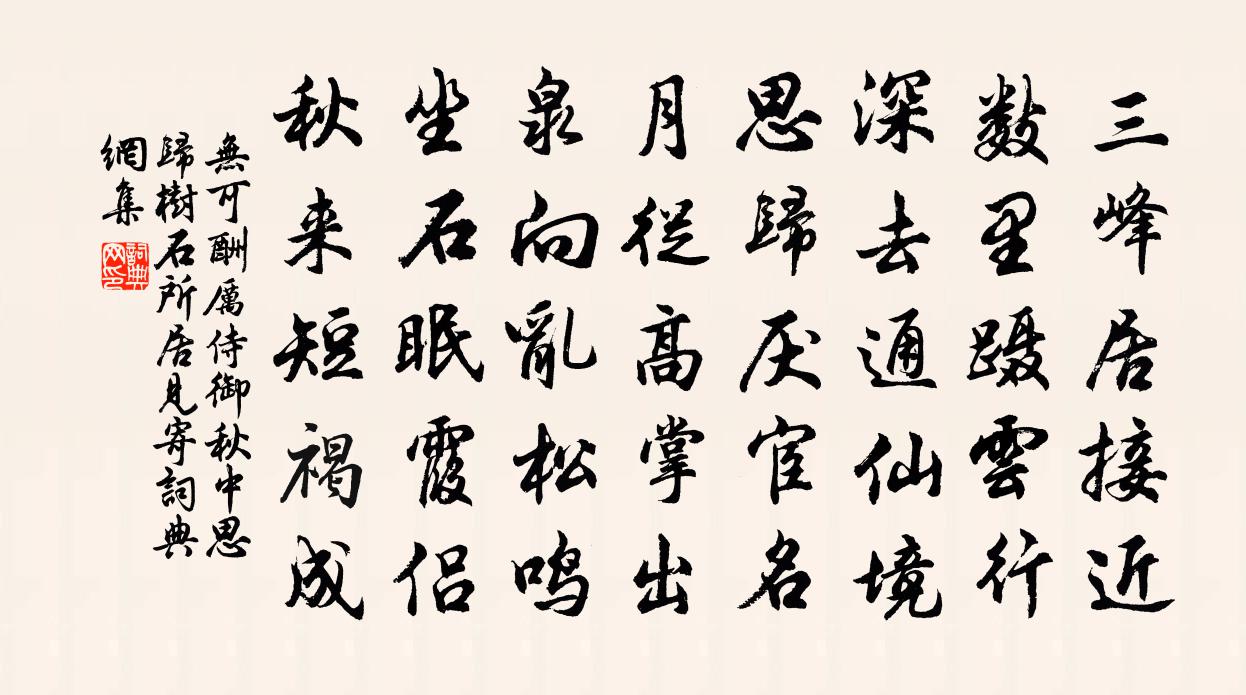 三峰居接近
数里蹑雲行
深去通仙境
思歸厌宦名
月從高掌出
泉向亂松鳴
坐石眠霞侶
秋来短褐成
無可酬厲侍御秋中思
歸樹石所居見寄詞典
網集
詞典網印